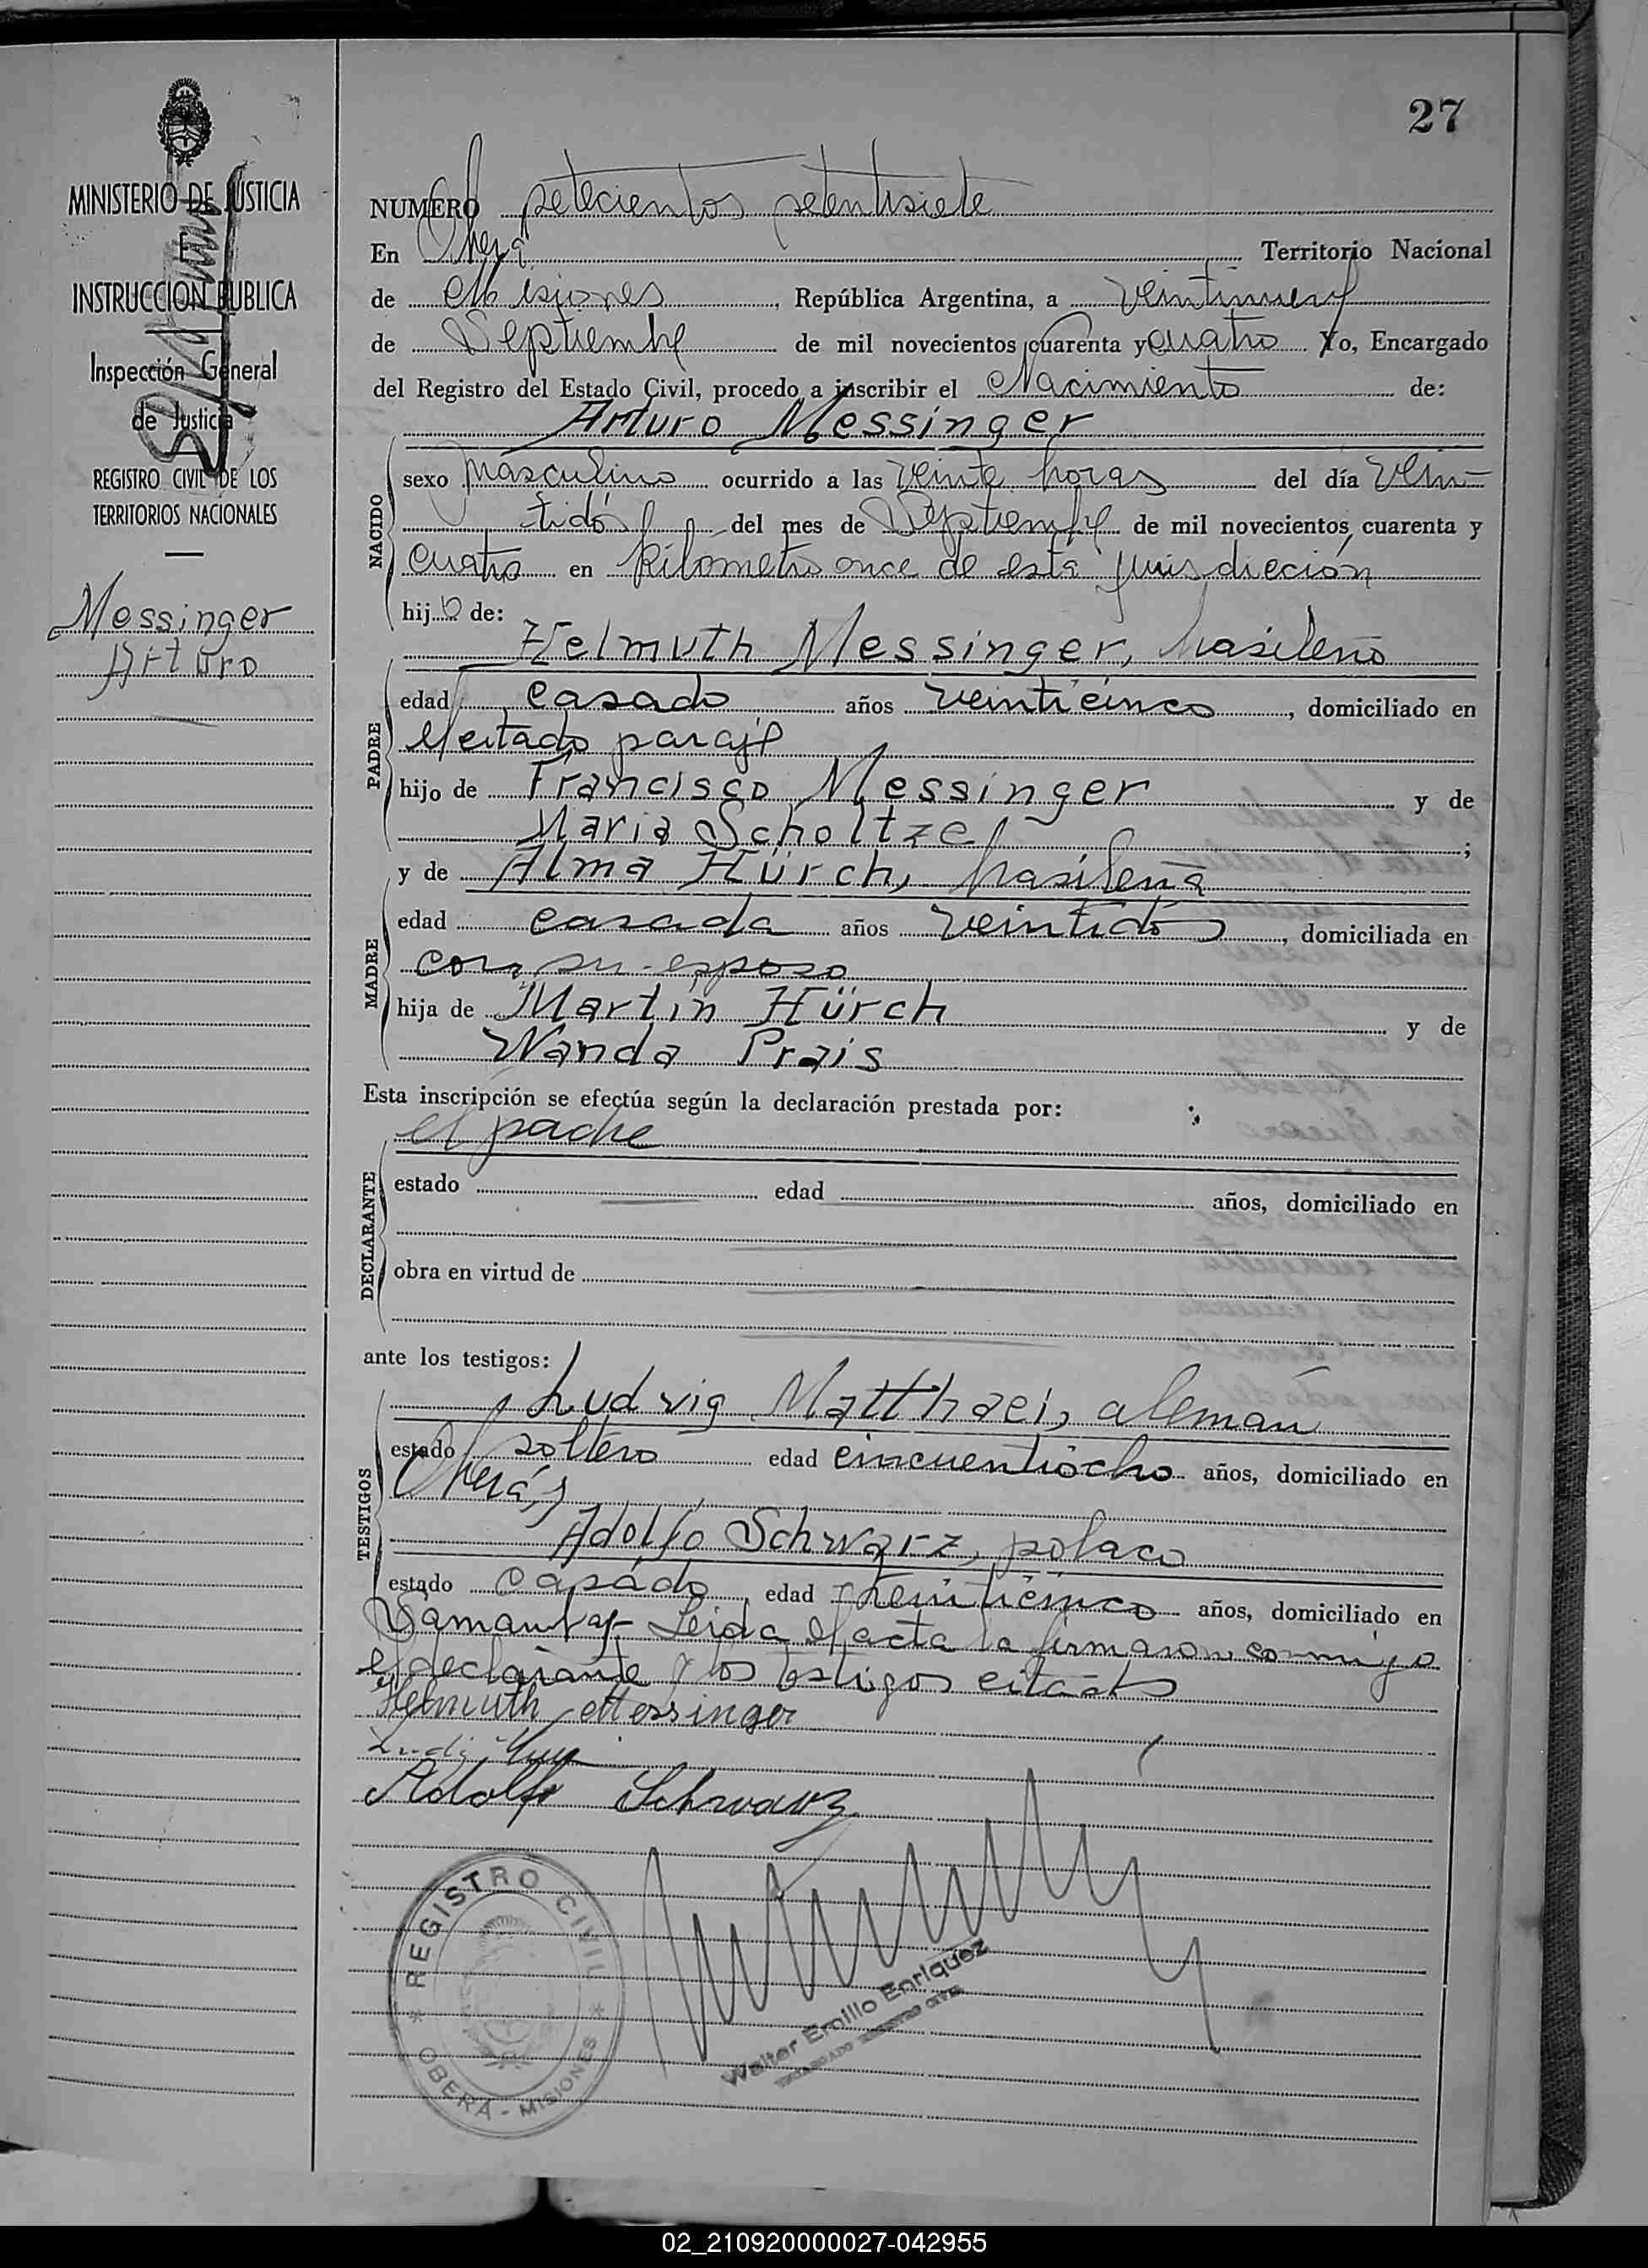 27
MINISTERIO DE JUSTICIA
E
INSTRUCCION PUBLICA
Inspección General
de Justicia
REGISTRO CIVIL DE LOS
TERRITORIOS NACIONALES
Messinger
Arturo
NUMERO setecientos setentisiete
En Oberá Territorio Nacional
de Misiones, República Argentina, a veintinueve
de Septiembre de mil novecientos cuarenta y cuatro Yo, Encargado
del Registro del Estado Civil, procedo a inscribir el Nacimiento de:
Arturo Messinger
NACIDO
sexo masculino ocurrido a las veinte horas del día vein-
tidós del mes de Septiembre de mil novecientos cuarenta y
cuatro en kilómetro once de esta jurisdicción
hijo de:
Helmuth Messinger, brasileño
PADRE
edad casado años veinticinco, domiciliado en
el citado paraje
hijo de Francisco Messinger y de
Maria Scholtze;
y de Alma Hürch, brasileña
MADRE
edad casada años veintidós, domiciliada en
con su esposo
hija de Martín Hürch y de
Wanda Prais
Esta inscripción se efectúa según la declaración prestada por:
el padre
DECLARANTE
estado edad años, domiciliado en
obra en virtud de
ante los testigos:
TESTIGOS
Ludvig Matthaei, alemán
estado soltero edad cincuentiocho años, domiciliado en
Oberá, y
Adolfo Schwarz, polaco
estado casado edad años, domiciliado en
Leida el acta la firmaron conmigo
el declarante y los testigos citados
Helmuth Messinger
Adolf Schwarz
REGISTRO CIVIL
OBERÁ - MISIONES
Walter Emilio Enriquez
ENCARGADO REGISTRO CIVIL
02_210920000027-042955